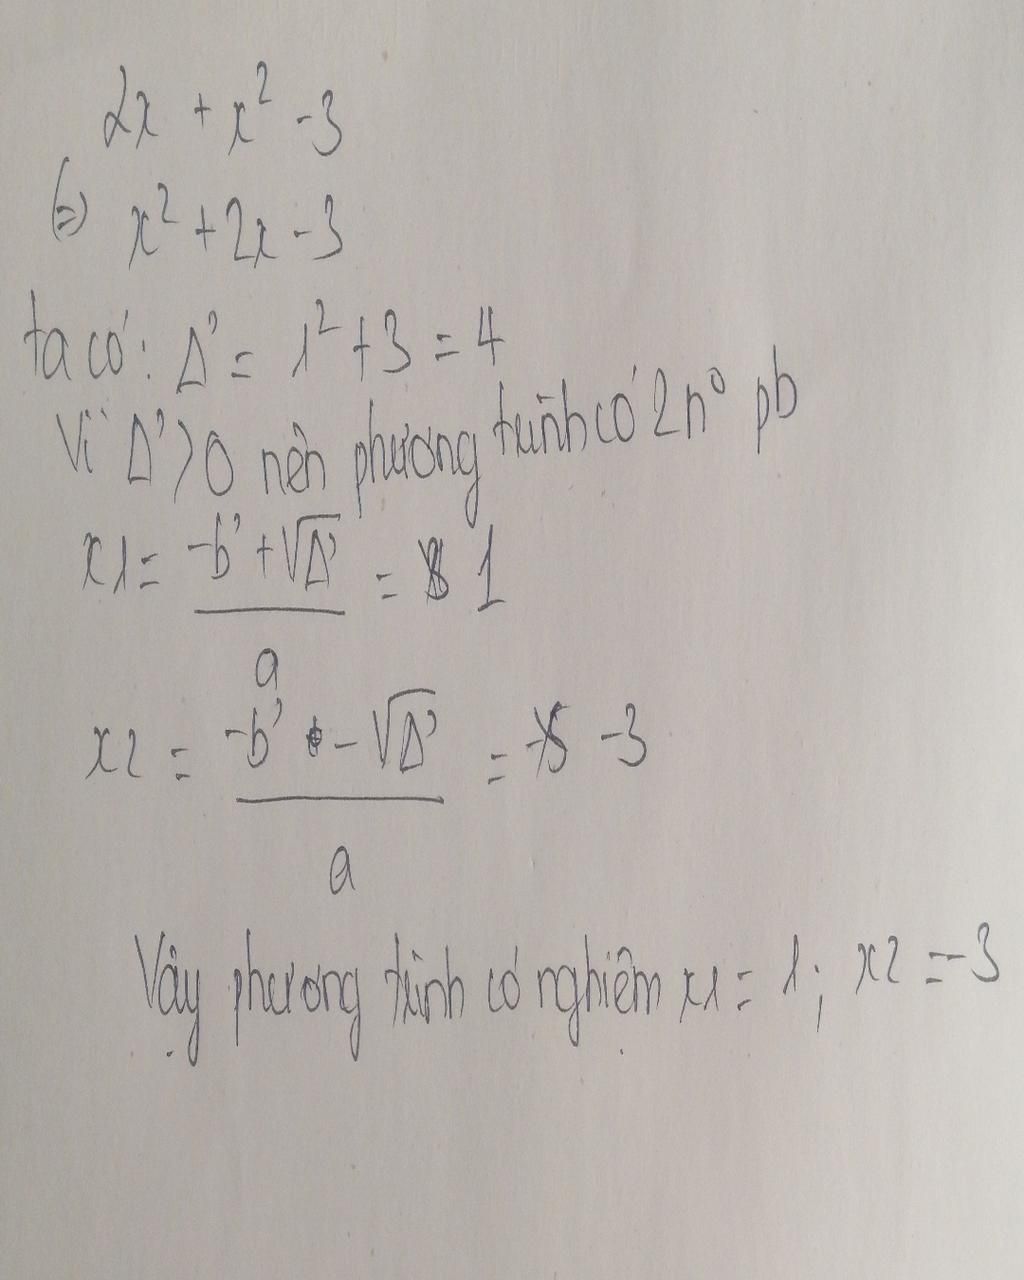 2x + x² - 3
⇔ x² + 2x - 3
ta có: Δ' = 1² + 3 = 4
Vì Δ' > 0 nên phương trình có 2 n⁰ pb
x1 = (-b' + √Δ') / a = 1
x2 = (-b' - √Δ') / a = -3
Vậy phương trình có nghiệm x1 = 1; x2 = -3